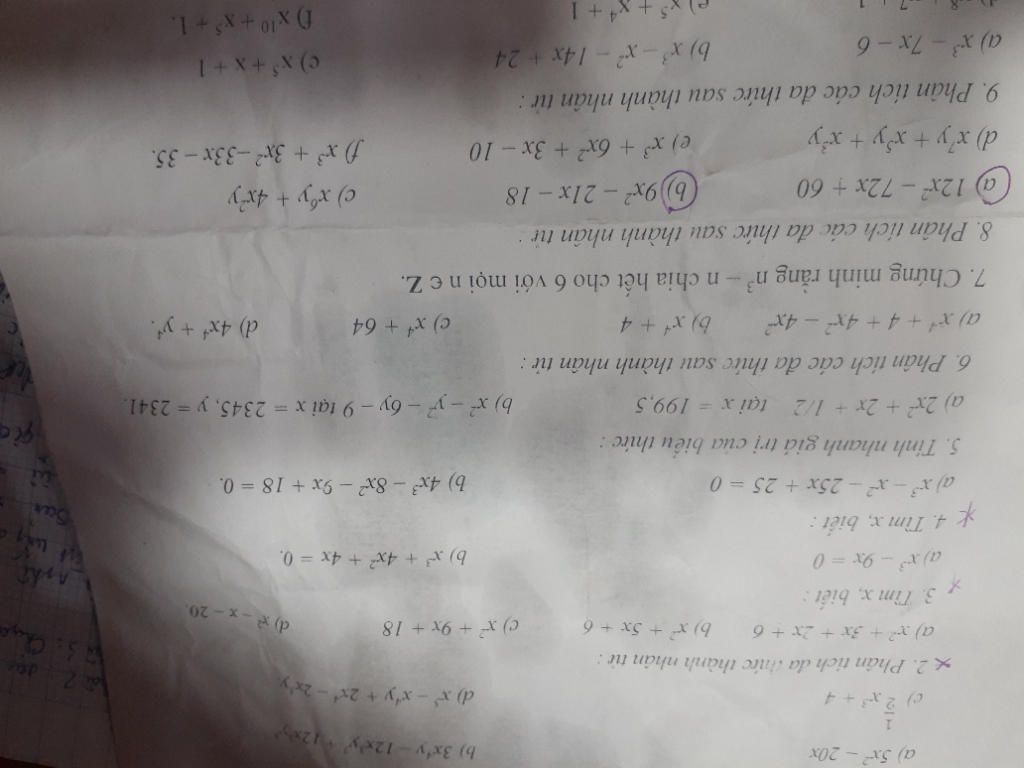 a) 5x² – 20x b) 3x⁴y – 12x³y² + 12x²y³
c) 1/2 x³ + 4 d) x⁵ – x⁴y + 2x⁴ – 2x³y
2. Phân tích đa thức thành nhân tử :
a) x² + 3x + 2x + 6 b) x² + 5x + 6 c) x² + 9x + 18 d) x² – x – 20.
3. Tìm x, biết :
a) x³ – 9x = 0 b) x³ + 4x² + 4x = 0.
4. Tìm x, biết :
a) x³ – x² – 25x + 25 = 0 b) 4x³ – 8x² – 9x + 18 = 0.
5. Tính nhanh giá trị của biểu thức :
a) 2x² + 2x + 1/2 tại x = 199,5 b) x² – y² – 6y – 9 tại x = 2345, y = 2341.
6. Phân tích các đa thức sau thành nhân tử :
a) x⁴ + 4 + 4x² – 4x² b) x⁴ + 4 c) x⁴ + 64 d) 4x⁴ + y⁴.
7. Chứng minh rằng n³ – n chia hết cho 6 với mọi n ∈ Z.
8. Phân tích các đa thức sau thành nhân tử :
a) 12x² – 72x + 60 b) 9x² – 21x – 18 c) x⁶y + 4x²y
d) x⁷y + x⁵y + x³y e) x³ + 6x² + 3x – 10 f) x³ + 3x² –33x – 35.
9. Phân tích các đa thức sau thành nhân tử :
a) x³ – 7x – 6 b) x³ – x² – 14x + 24 c) x⁵ + x + 1
e) x⁵ + x⁴ + 1 f) x¹⁰ + x⁵ + 1.